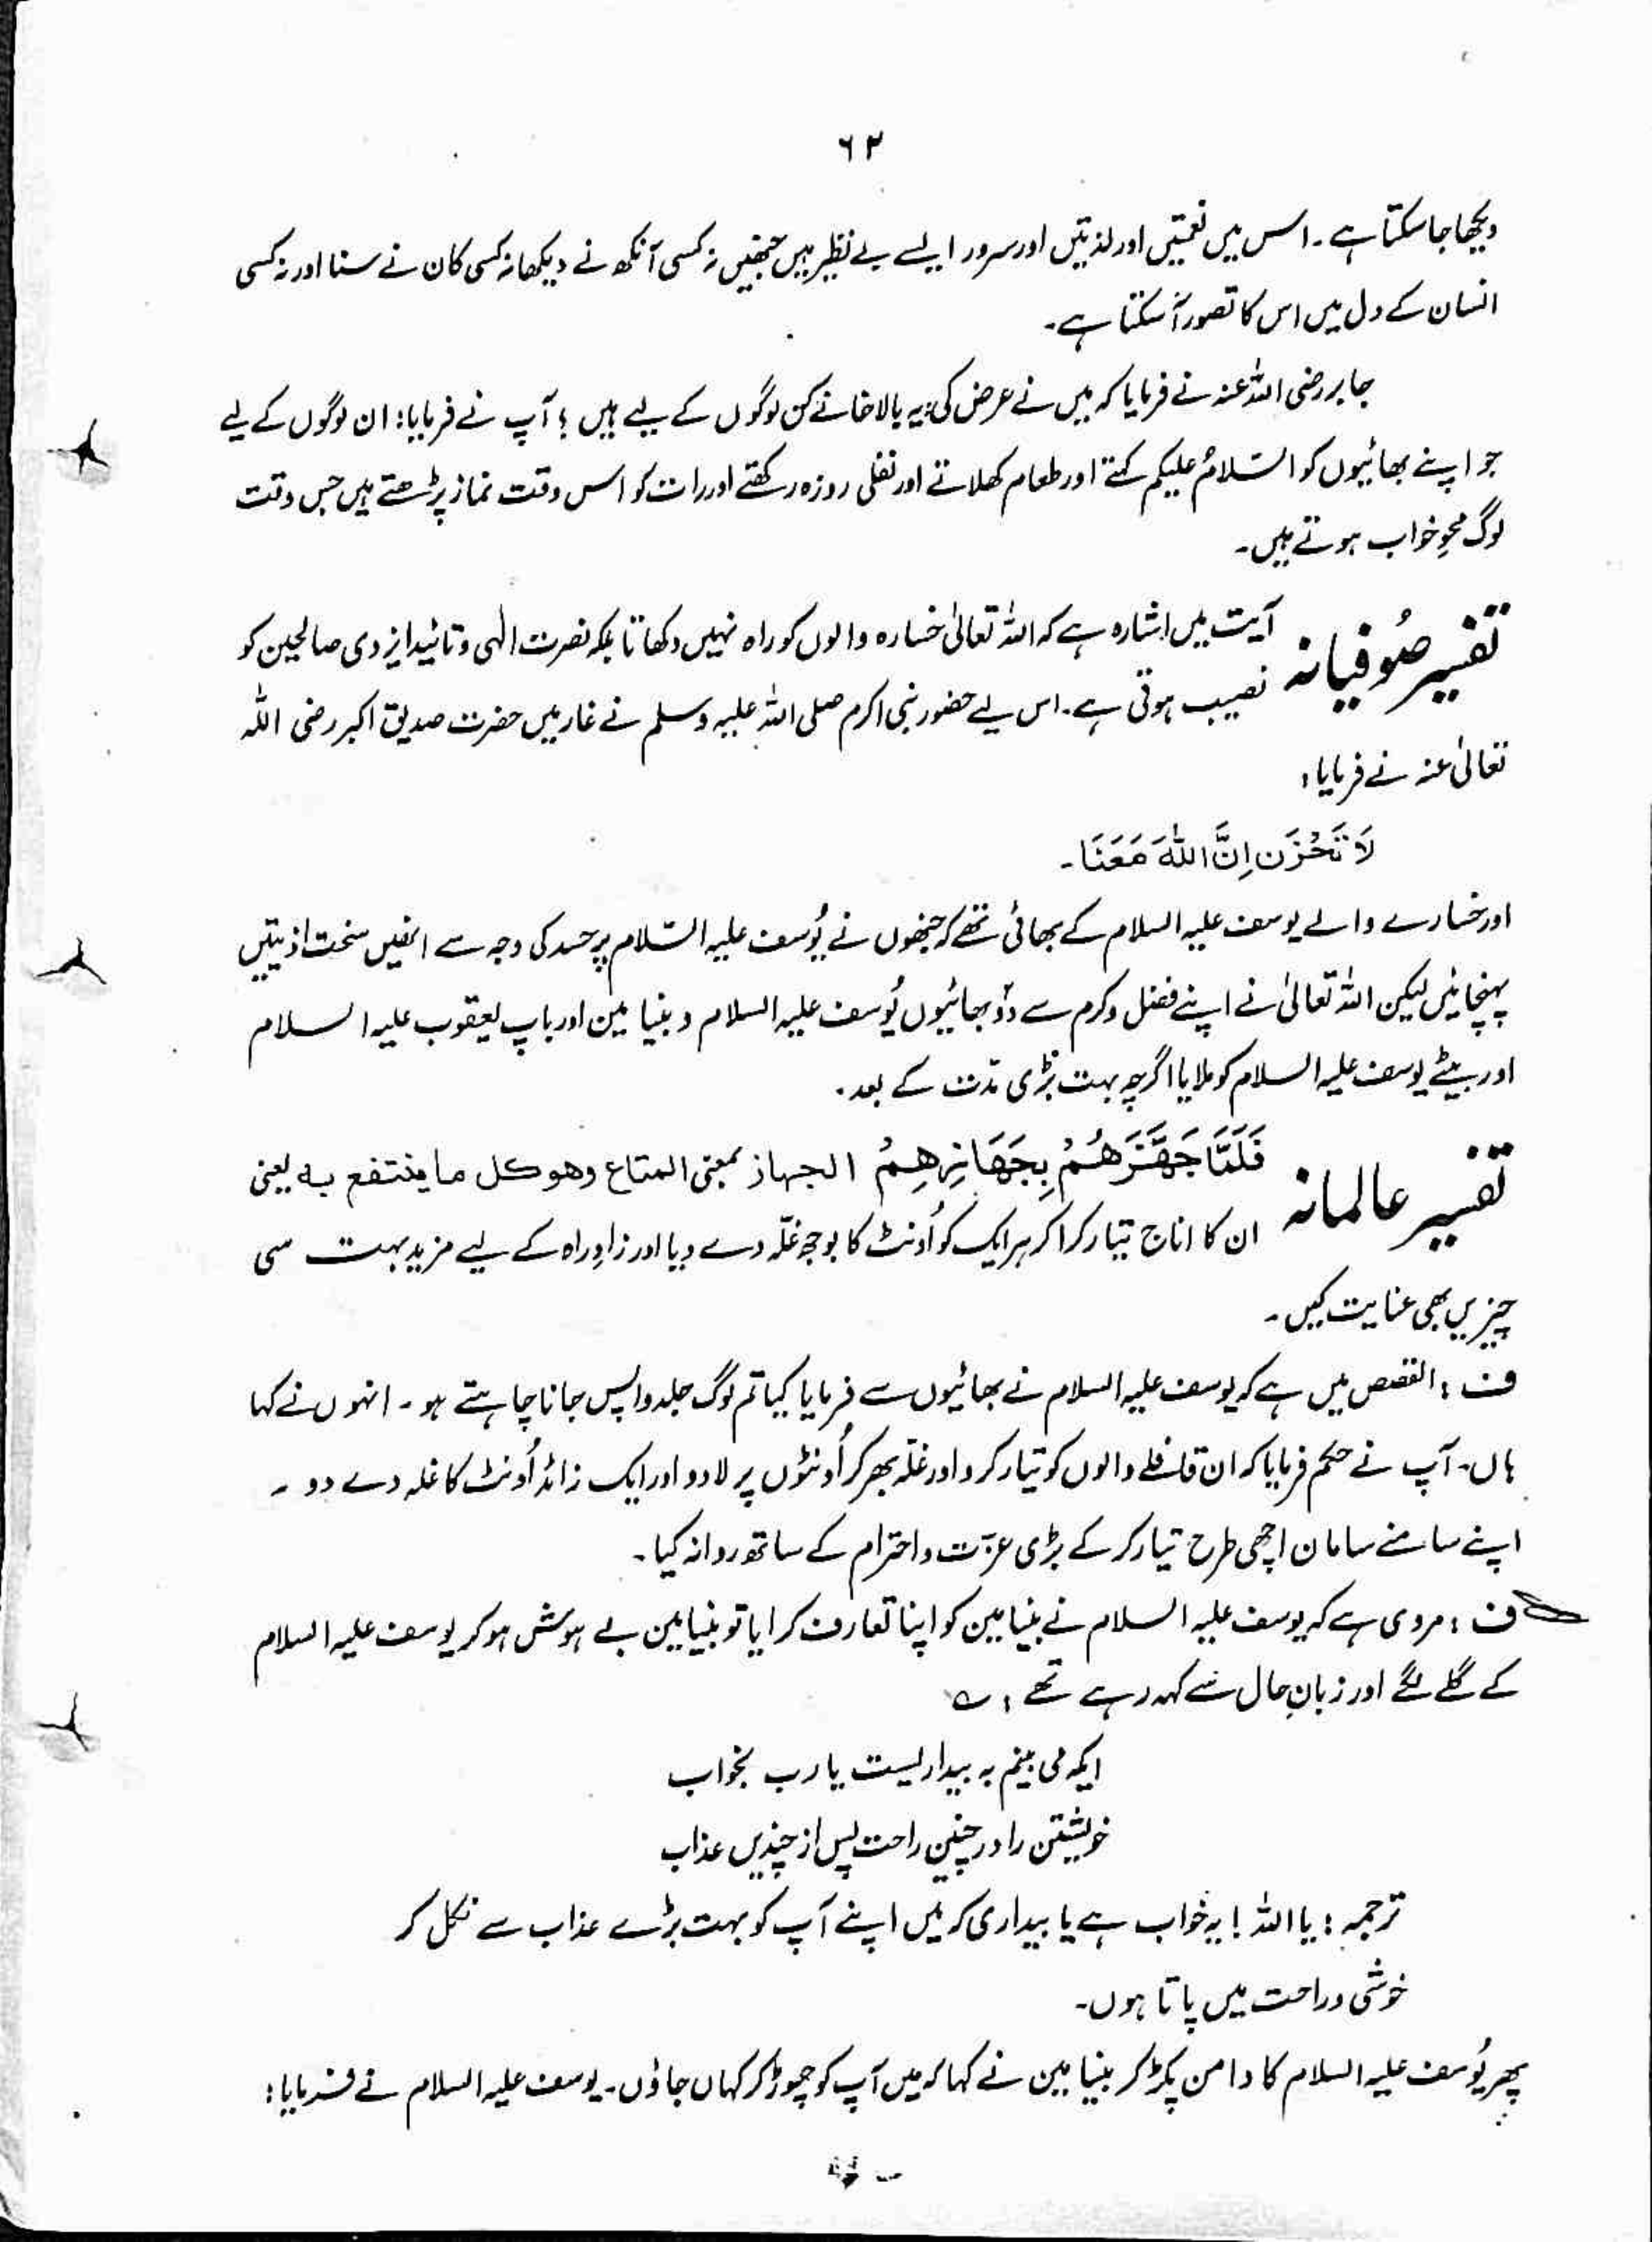 ٦٢
دیکھا جا سکتا ہے۔ اس میں نعمتیں اور لذتیں اور سرور ایسے بے نظیر ہیں جنھیں نہ کسی آنکھ نے دیکھا نہ کسی کان نے سنا اور نہ کسی
انسان کے دل میں اس کا تصور آ سکتا ہے۔
جابر رضی اللہ عنہ نے فرمایا کہ میں نے عرض کی: یہ بالا خانے کن لوگوں کے لیے ہیں ؟ آپ نے فرمایا: ان لوگوں کے لیے
جو اپنے بھائیوں کو السّلامُ علیکم کہتے اور طعام کھلاتے اور نفلی روزہ رکھتے اور رات کو اس وقت نماز پڑھتے ہیں جس وقت
لوگ محوِ خواب ہوتے ہیں۔
تفسیر صُوفیانہ آیت میں اشارہ ہے کہ اللہ تعالیٰ خسارہ والوں کو راہ نہیں دکھاتا بلکہ نصرت الٰہی و تائید ایزدی صالحین کو
نصیب ہوتی ہے۔ اس لیے حضور نبی اکرم صلی اللہ علیہ وسلم نے غار میں حضرت صدیق اکبر رضی اللہ
تعالیٰ عنہ نے فرمایا:
لَا تَحْزَن اِنَّ اللّٰهَ مَعَنَا۔
اور خسارے والے یوسف علیہ السلام کے بھائی تھے کہ جنھوں نے یُوسف علیہ السّلام پر حسد کی وجہ سے انھیں سخت اذیتیں
پہنچائیں لیکن اللہ تعالیٰ نے اپنے فضل و کرم سے دو بھائیوں یُوسف علیہ السلام و بنیامین اور باپ یعقوب علیہ السلام
اور بیٹے یوسف علیہ السلام کو ملایا اگرچہ بہت بڑی مدّت کے بعد۔
تفسیر عالمانہ فَلَمَّا جَهَّزَهُمْ بِجَهَازِهِمْ الجهاز بمعنی المتاع وهو کل ما ینتفع به یعنی
ان کا اناج تیار کرا کر ہر ایک کو اُونٹ کا بوجھ غلّہ دے دیا اور زادِ راہ کے لیے مزید بہت سی
چیزیں بھی عنایت کیں۔
ف : القصص میں ہے کہ یوسف علیہ السلام نے بھائیوں سے فرمایا کیا تم لوگ جلد واپس جانا چاہتے ہو۔ انہوں نے کہا
ہاں۔ آپ نے حکم فرمایا کہ ان قافلے والوں کو تیار کرو اور غلّہ بھر کر اُونٹوں پر لادو اور ایک زائد اُونٹ کا غلہ دے دو ۔
اپنے سامنے سامان اچھی طرح تیار کر کے بڑی عزّت و احترام کے ساتھ روانہ کیا۔
ف : مروی ہے کہ یوسف علیہ السلام نے بنیامین کو اپنا تعارف کرایا تو بنیامین بے ہوش ہو کر یوسف علیہ السلام
کے گلے لگے اور زبانِ حال سے کہہ رہے تھے : ؎
ایکہ می بینم بہ بیداریست یا رب بخواب
خویشتن را در چنین راحت پس از چندیں عذاب
ترجمہ : یا اللہ ! یہ خواب ہے یا بیداری کہ میں اپنے آپ کو بہت بڑے عذاب سے نکل کر
خوشی و راحت میں پاتا ہوں۔
پھر یُوسف علیہ السلام کا دامن پکڑ کر بنیامین نے کہا کہ میں آپ کو چھوڑ کر کہاں جاؤں۔ یوسف علیہ السلام نے فرمایا: